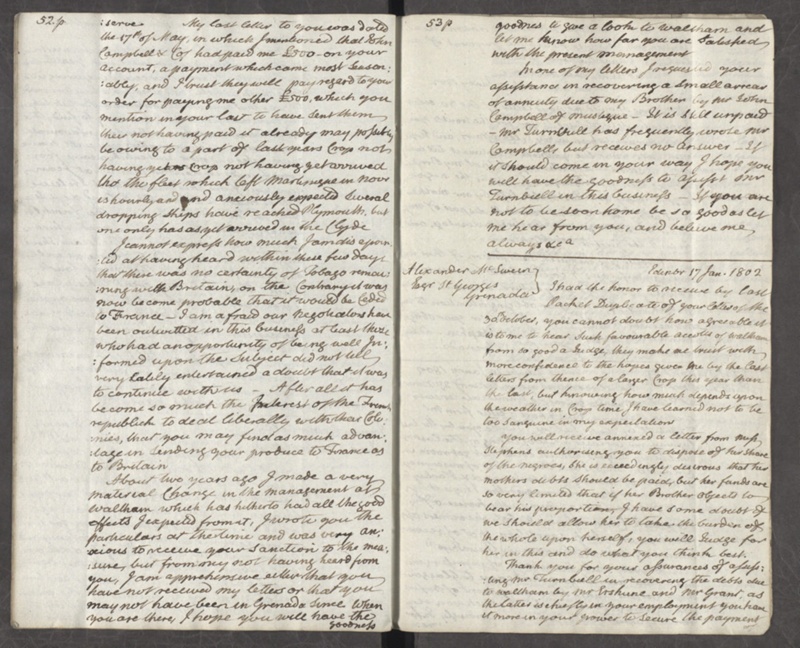 52.p
:serve My last letter to you was dated
the 17th of May, in which I mentioned that John
Campbell & Co. had paid me £500 on your
account, a payment which came most season:
:ably, and I trust they will pay regard to your
order for paying me other £500, which you
mention in your last to have sent them
their not having paid it already may possibly
be owing to a part of last years Crop not
having years Crop not having yet arrived
tho the fleet which left Martinique in Novr
is hourly and anxiously expected Several
dropping Ships have reached Plymouth, but
one only has as yet arrived in the Clyde
I cannot express how much I am disapoin:
:ted at having heard within these few days
that there was no certainty of Tobago remai:
:ning with Britain, on the Contrary it was
now become probable that it would be Ceded
to France – I am afraid our Negociators have
been outwitted in this business at least those
who had an opportunity of being well In:
:formed upon the Subject did not till
very lately entertained a doubt that it was
to continue with us – After all it has
become so much the Interest of the French
republick to deal liberally with their Colo:
:nies, that you may find as much advan:
:tage in Sending your produce to France as
to Britain
About two years ago I made a very
material Change in the management at
Waltham which has hitherto had all the good
effects I expected from it, I wrote you the
particulars at the time and was very an:
:xious to receive your Sanction to the mea:
:sure, but from my not having heard from
you, I am apprehensive either that you
have not received my letters or that you
may not have been in Grenada Since When
you are there, I hope you will have the
goodness
53p
goodness to give a look to Waltham and
let me know how far you are Satisfied
with the present management
In one of my letters I requested your
assistance in recovering a Small arrear
of annuity due to my Brother by Mr John
Campbell of Mustique – It is Still unpaid
– Mr Turnbull has frequently wrote Mr
Campbell, but receives no answer – If
it Should come in your way I hope you
will have the goodness to assist Mr
Turnbull in this business – If you are
not to be Soon home be so good as let
me hear from you, and believe me
always &ca
Alexander McSween
Esqr St Georges
Grenada
Edinbr 17 Jan. 1802
I had the honor to receive by last
Packet Duplicate of your letter of the
3d October, you cannot doubt how agreeable it
is to me to hear Such favourable accots of Waltham
from so good a Judge, they make me trust with
more confidence to the hopes given me by the last
letters from thence of a larger Crop this year than
the last, but knowing how much depends upon
the weather in Crop time, I have learned not to be
too Sanguine in my expectation
You will receive annexed a letter from Miss
Stephens authorising you to dispose of her share
of the negroes, She is exceedingly desirous that her
mothers debts Should be paid, but her funds are
so very limited that if her Brother objects to
bear his proportion, I have some doubt if
we Should allow her to take the burden of
the whole upon herself, you will Judge for
her in this and do what you think best.
Thank you for your assurances of assis:
:ting Mr Turnbull in recovering the debts due
to Waltham by Mr Erskine and Mr Grant, as
the latter is chiefly in your employment you have
it more in your power to Secure the payment